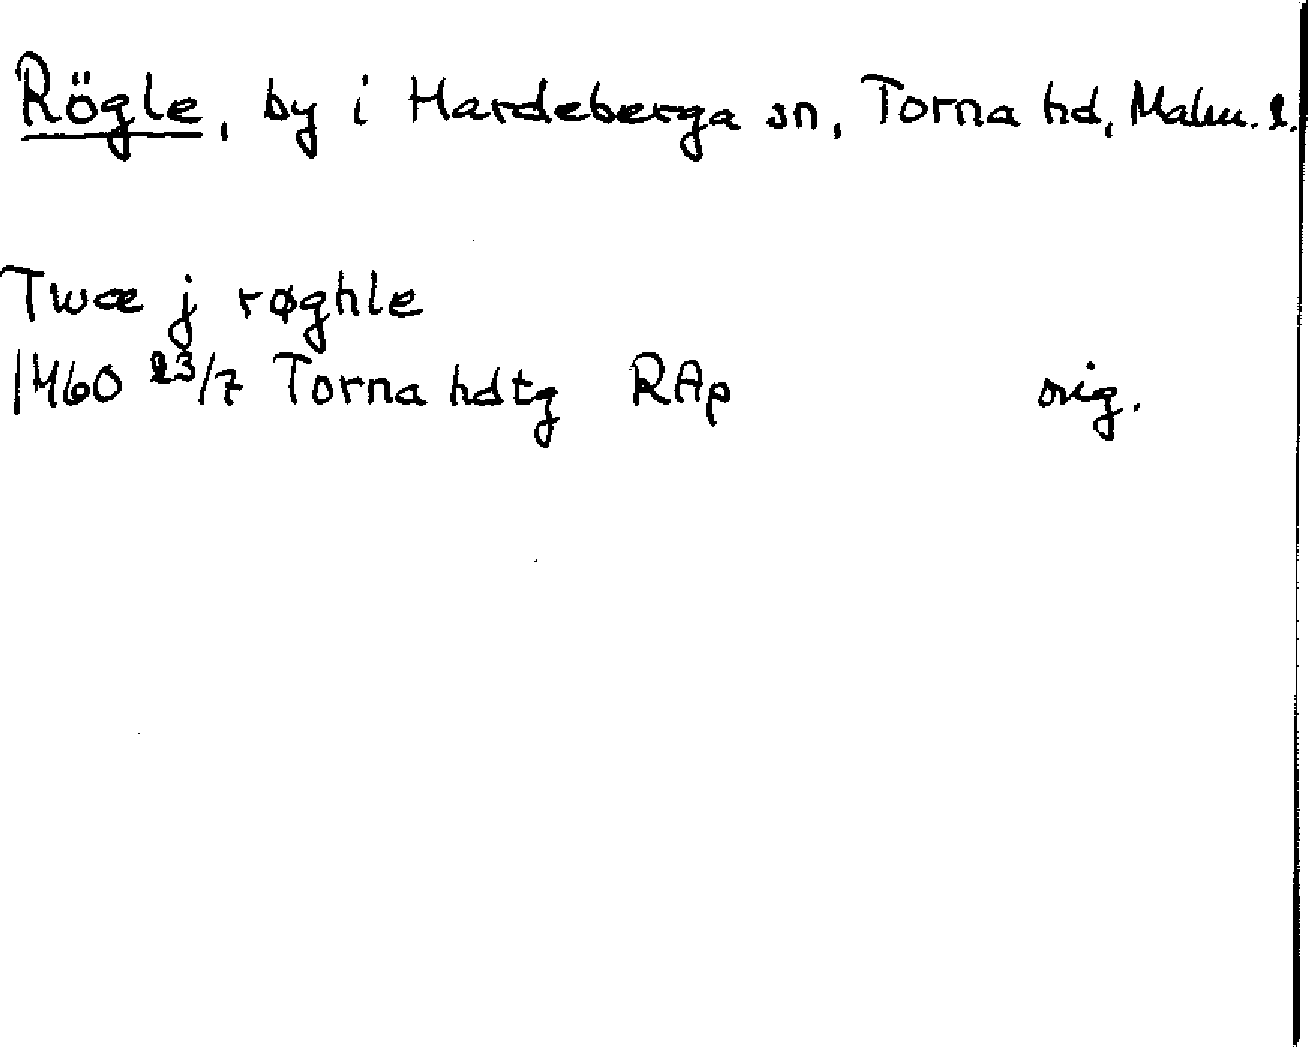 Rögle, by i Hardeberga sn, Torna hd, Malm. l.
Twæ j røghle
1460 23/7 Torna hdtg RAp orig.